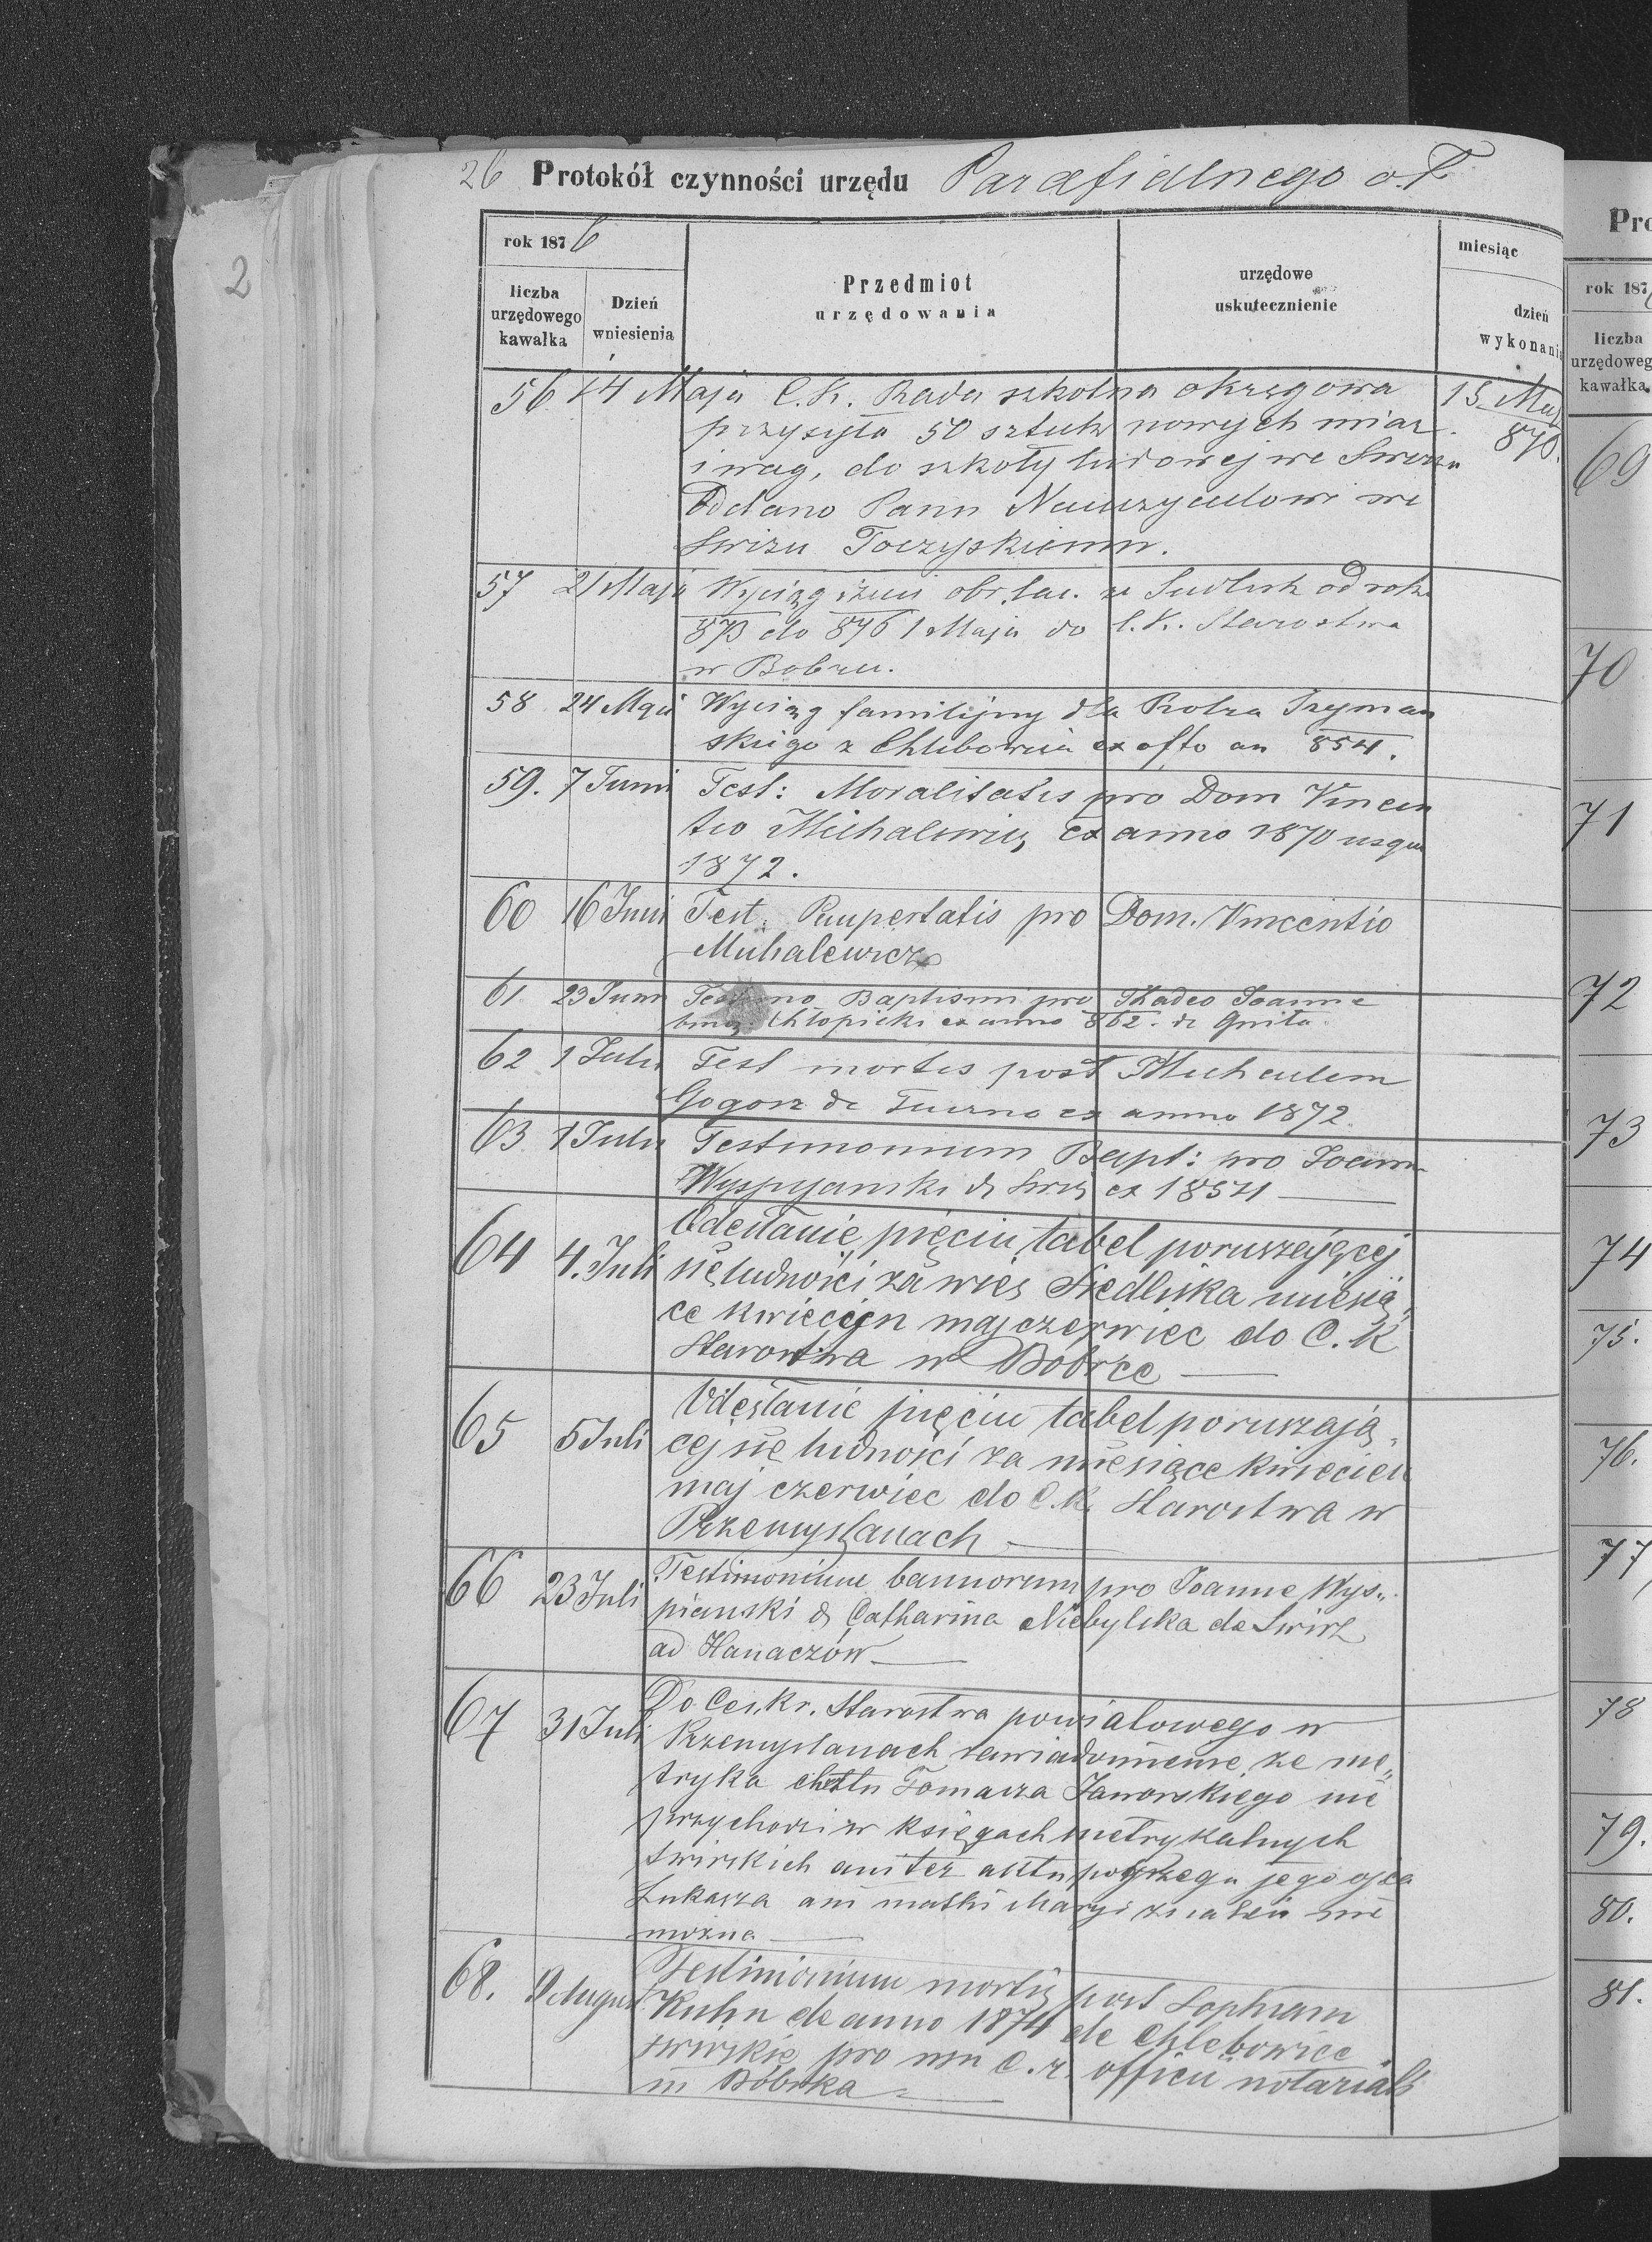 26 Protokół czynności urzędu Parafialnego o.ł.
rok 1876
liczba urzędowego kawałka
Dzień wniesienia
Przedmiot urzędowania
urzędowe uskutecznienie
miesiąc
dzień wykonani
56 14 Maja C.K. Rada szkolna okręgowa 15 Maj
przysyła 50 sztuk nowych miar 876.
i wag, do szkoły ludowej we Swirzu
Oddano Panu Nauczycielowi we
Swirzu Toczyskiemu.
57 21 Maja Wyciąg obr. łac. ze Siedlisk od roku
873 do 876 1 Maja do C.K. Starostwa
w Bobrce.
58 24 Maja Wyciąg familijny dla Szyman
skiego z Chlebowic ex offo an 854.
59. 7 Junii Test: Moralitatis pro Dom Vincen
tio Michalewicz, ex anno 1870 usque
1872.
60 16 Junii Test. Paupertatis pro Dom. Vincentio
Michalewicz
61 23 Junii Baptismi pro Thadeo Joanne
Chłopicki ex anno 862. de
62 1 Julii Test mortis post Michaelem
Gogosz de ex anno 1872.
63 1 Julii Testimonium Bapt: pro Joann
Wyspyanski de Swirz ex 1854
64 4. Juli Odesłanie pięciu tabel poruszającej
się ludności za wieś Siedliska miesią„
ce kwiecień maj czerwiec do C. K
Starostwa w Bóbrce
65 5 Juli Odesłanie pięciu tabel poruszają„
cej się ludności za miesiące kwiecień
maj czerwiec do C.K. Starostwa w
Przemyślanach
66 23 Juli Testimonium bannorum pro Joanne Wys„
pianski & Catharina Niebylska de Swirz
ad Hanaczów
67 31 Juli Do Ces. kr. Starostwa powiatowego w
Przemyslanach zawiadomienie ze me„
tryka chrztu Tomasza Jaworskiego nie
przychodzi w księgach metrykalnych
swirskich ani też aktu pogrzegu jego ojca
Łukasza ani matki Maryi znaleść nie
można
68. 9 August Testimonium mortis post Sophiam
Kuhn de anno 1874 de Chlebowice
swirskie pro usu C. r. officii notarialis
in Bóbrka
2
Pro
rok 187
liczba
urzędoweg
kawałka
69
70
71
72
73
74
75.
76.
77
78
79.
80.
81.